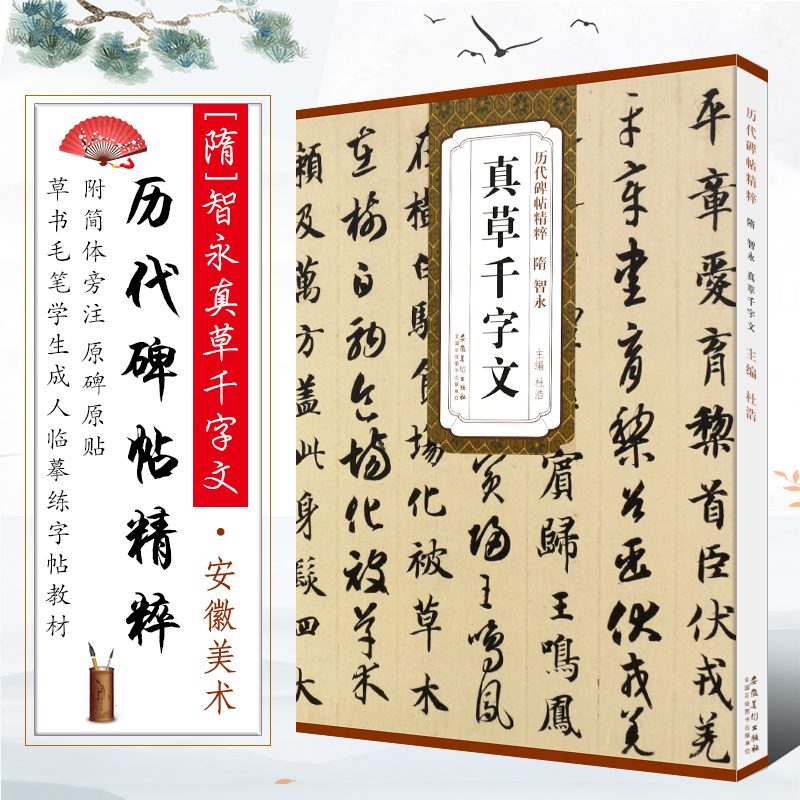 [隋]智永真草千字文
·安徽美术
历代碑帖精粹
附简体旁注 原碑原贴
草书毛笔学生成人临摹练字帖教材
历代碑帖精粹 隋 智永
真草千字文
主编 杜浩
安徽美术出版社
全国百佳图书出版单位
平章爱育黎首臣伏戎羌
平章爱育黎首臣伏戎羌
賓歸王鳴鳳
賓歸王鳴鳳
在樹白駒食場化被草木
在樹白駒食場化被草木
賴及萬方盖此身髮四大
历代碑帖精粹 隋 智永 真草千字文 主编 杜浩
安徽美术出版社
全国百佳图书出版单位